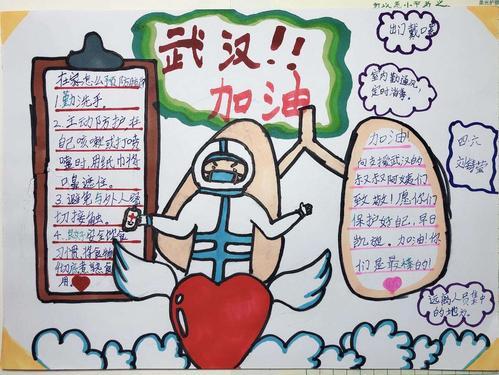 武汉!!
加油
在家怎么预防
1.勤洗手。
2.主动防护在
自己咳嗽或打喷
嚏时,用纸巾将
口鼻遮住。
3.避免与外人密
切接触。
习惯,将食物
彻底煮熟食
用。
加油
向支援武汉的
叔叔阿姨们
致敬!愿你们
保护好自己,早日
凯旋。加油!你
们是最棒的!
出门戴口罩
室内勤通风,
定时消毒。
四六
远离人员集中
的地方